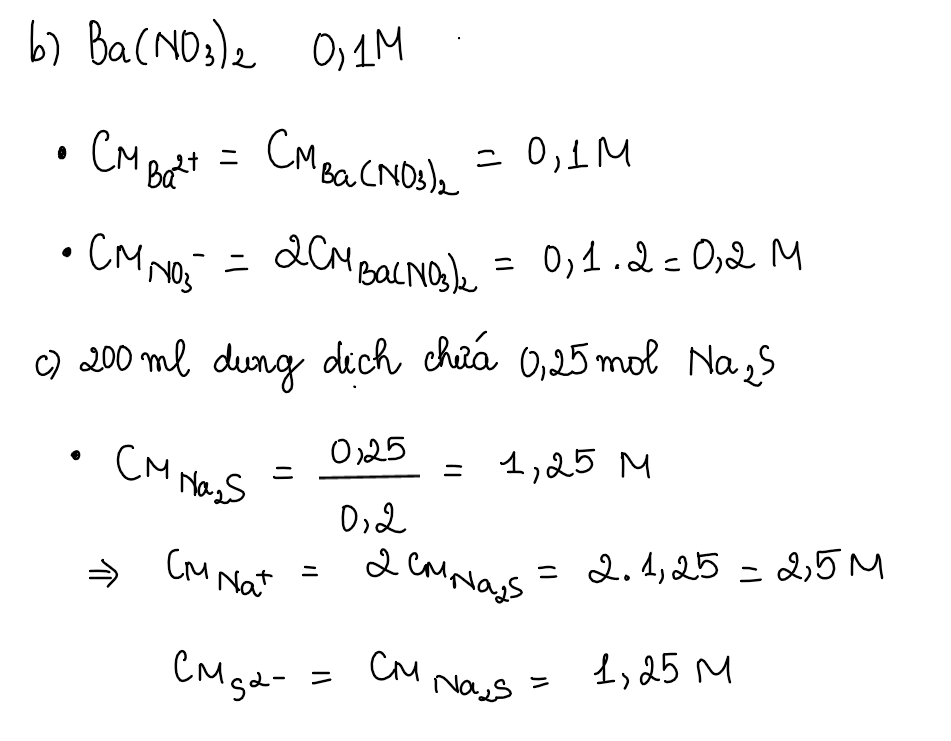 b) Ba(NO₃)₂ 0,1M
• CM Ba²⁺ = CM Ba(NO₃)₂ = 0,1M
• CM NO₃⁻ = 2CM Ba(NO₃)₂ = 0,1.2 = 0,2 M
c) 200 ml dung dịch chứá 0,25 mol Na₂S
• CM Na₂S = 0,25 / 0,2 = 1,25 M
⇒ CM Na⁺ = 2 CM Na₂S = 2.1,25 = 2,5 M
CM S²⁻ = CM Na₂S = 1,25 M